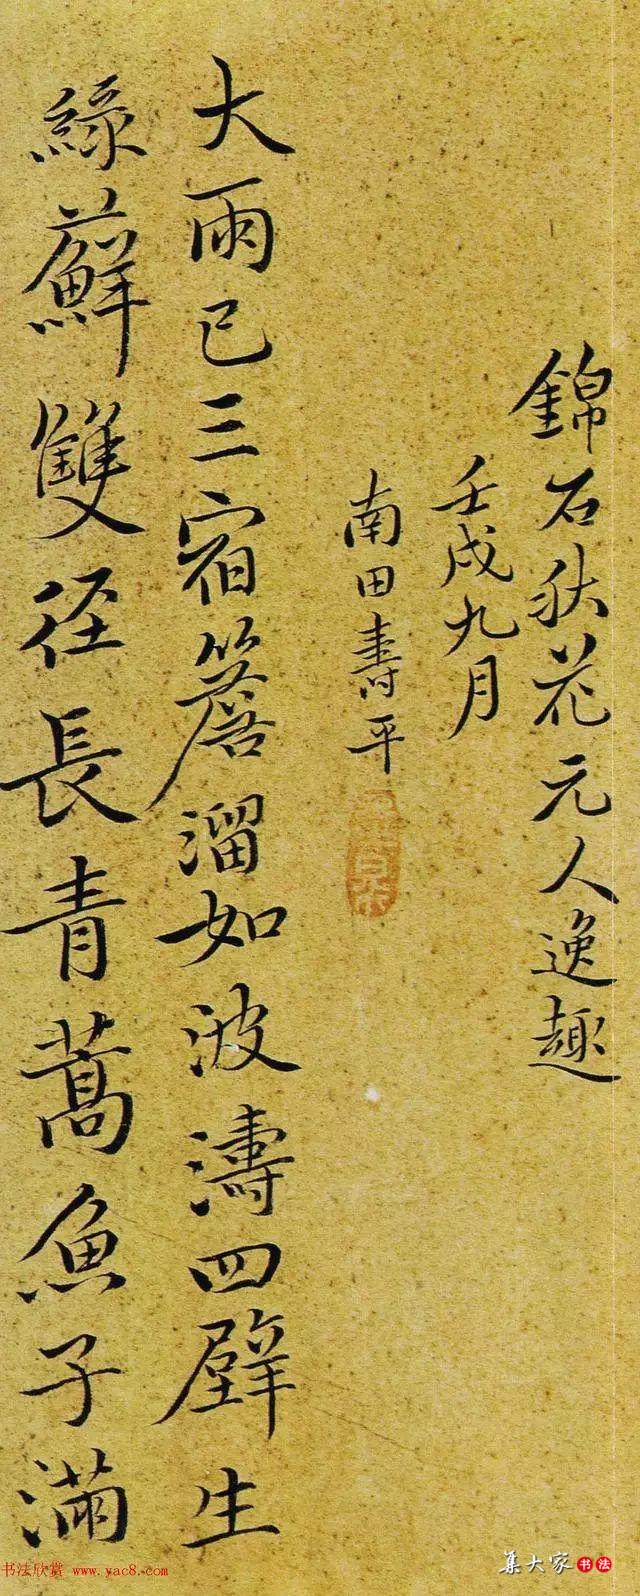 錦石秋花元人逸趣
壬戌九月
南田壽平
大雨已三宿簷溜如波濤四壁生
綠蘚雙径長青蒿魚子滿
書法欣赏 www.yac8.com
集大家 书法